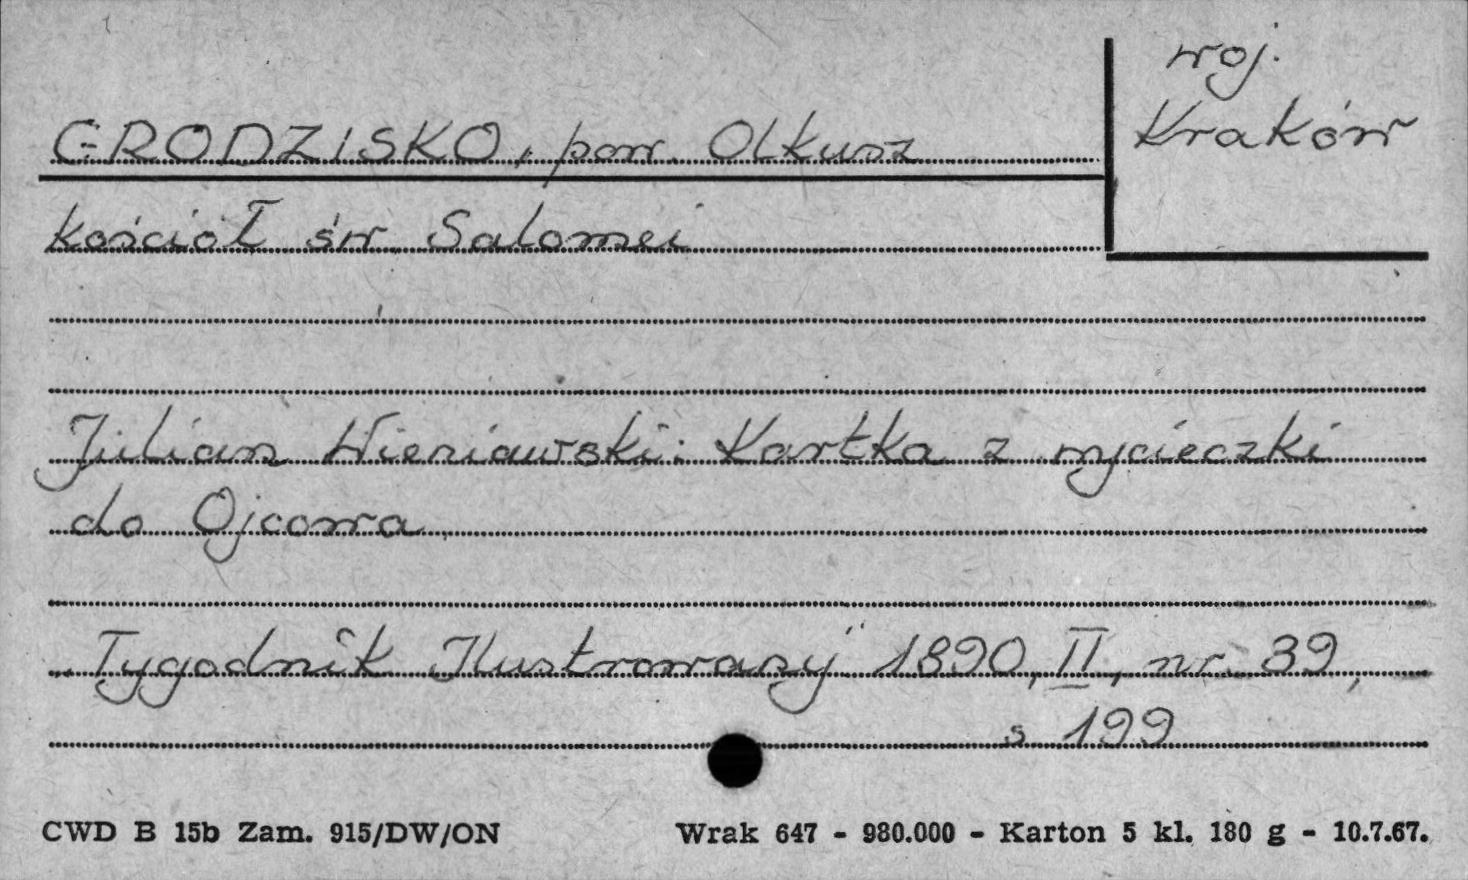 woj.
Kraków
GRODZISKO, pow. Olkusz
kościół św. Salomei
Julian Wieniawski: Kartka z wycieczki
do Ojcowa
„Tygodnik Ilustrowany" 1890, II, nr. 39,
s 199
CWD B 15b Zam. 915/DW/ON Wrak 647 - 980.000 - Karton 5 kl. 180 g - 10.7.67.